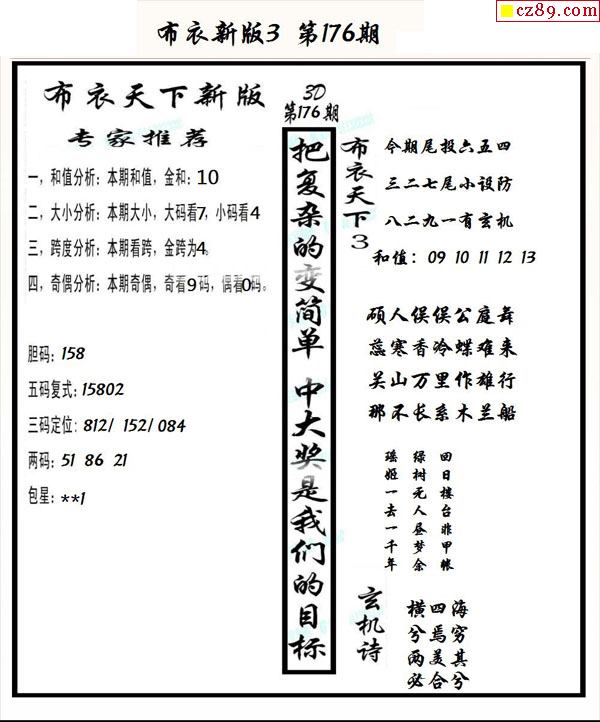 cz89.com
布衣新版3 第176期
布衣天下新版
专家推荐
一，和值分析：本期和值，金和：10
二，大小分析：本期大小，大码看7，小码看4
三，跨度分析：本期看跨，金跨为4。
四，奇偶分析：本期奇偶，奇看9码，偶看0码。
胆码：158
五码复式：15802
三码定位：812/ 152/ 084
两码：51 86 21
包星：**1
3D
第176期
把复杂的变简单 中大奖是我们的目标
布衣天下3
今期尾投六五四
三二七尾小设防
八二九一有玄机
和值： 09 10 11 12 13
硕人俣俣公庭舞
蕊寒香冷蝶难来
关山万里作雄行
那不长系木兰船
回日楼台非甲帐
绿树无人昼梦余
瑶姬一去一千年
玄机诗
海穷其兮
四焉美合
横兮两必